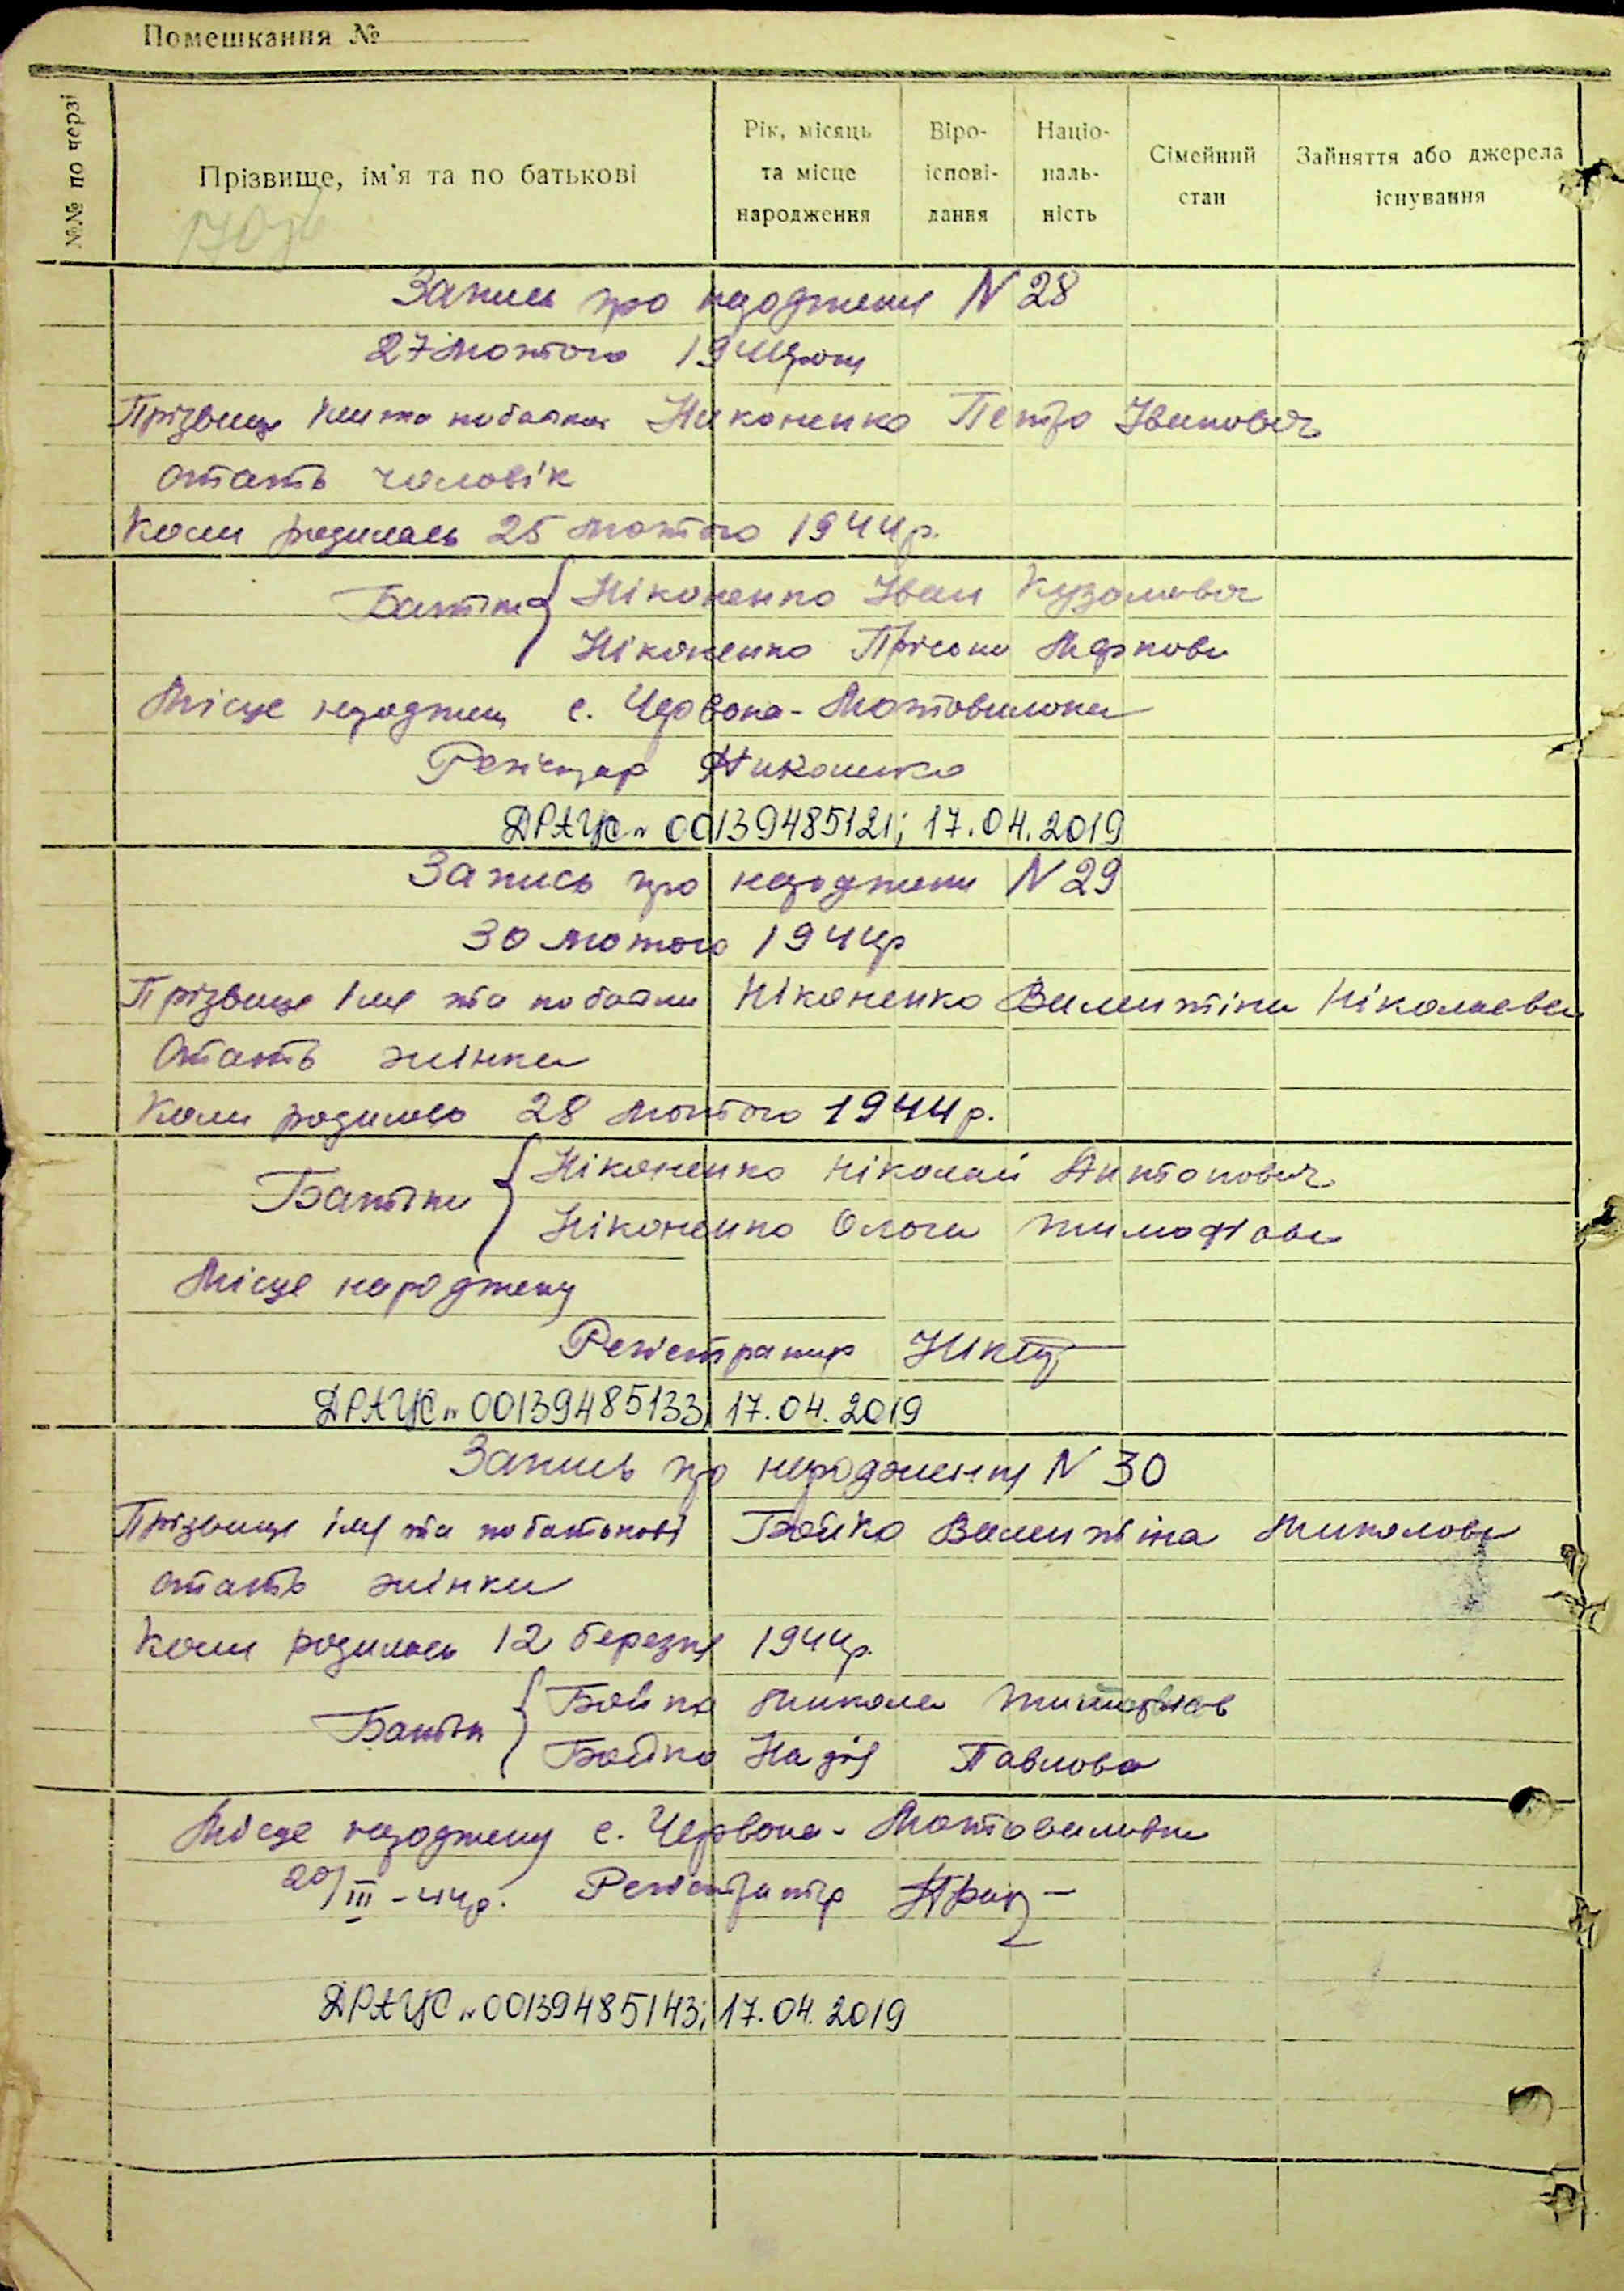 Помешкання №
№№ по черзі
Прізвище, ім'я та по батькові
Рік, місяць та місце народження
Віро- іспові- дання
Націо- наль- ність
Сімейний стан
Зайняття або джерела існування
Запись про народження N 28
27 лютого 1944 роки
Прізвище імя та побатьк Никоненко Петро Іванович
стать чоловік
Коли родилась 25 лютого 1944 р.
Батьки Ніконенко Іван Кузьмович
Ніконенко Прісьна Маркова
Місце народжен с. Червона-Мотовиловка
ДРАЦС № 00139485121; 17.04.2019
Запись про народжени N 29
30 лютого 1944р
Прізвище імя та по батьки Ніконенко Валентіна Ніколаева
Стать жінка
Коли родилась 28 лютого 1944 р.
Батьки Ніконенко Ніколай Антонович
Ніконенко Ольга Тимофіова
Місце народжену
Регистратир
ДРАЦС № 00139485133; 17.04.2019
Запись про народження N 30
Прізвище імя та побатькові Бойко Валентіна Миколова
стать жінка
Коли родилась 12 березня 1944р.
Батьки Бойко Микола
Бойко Надія Павлова
Місце народжену с. Червона-Мотовиливка
20/III-44р. Регистратр
ДРАЦС № 00139485143; 17.04.2019